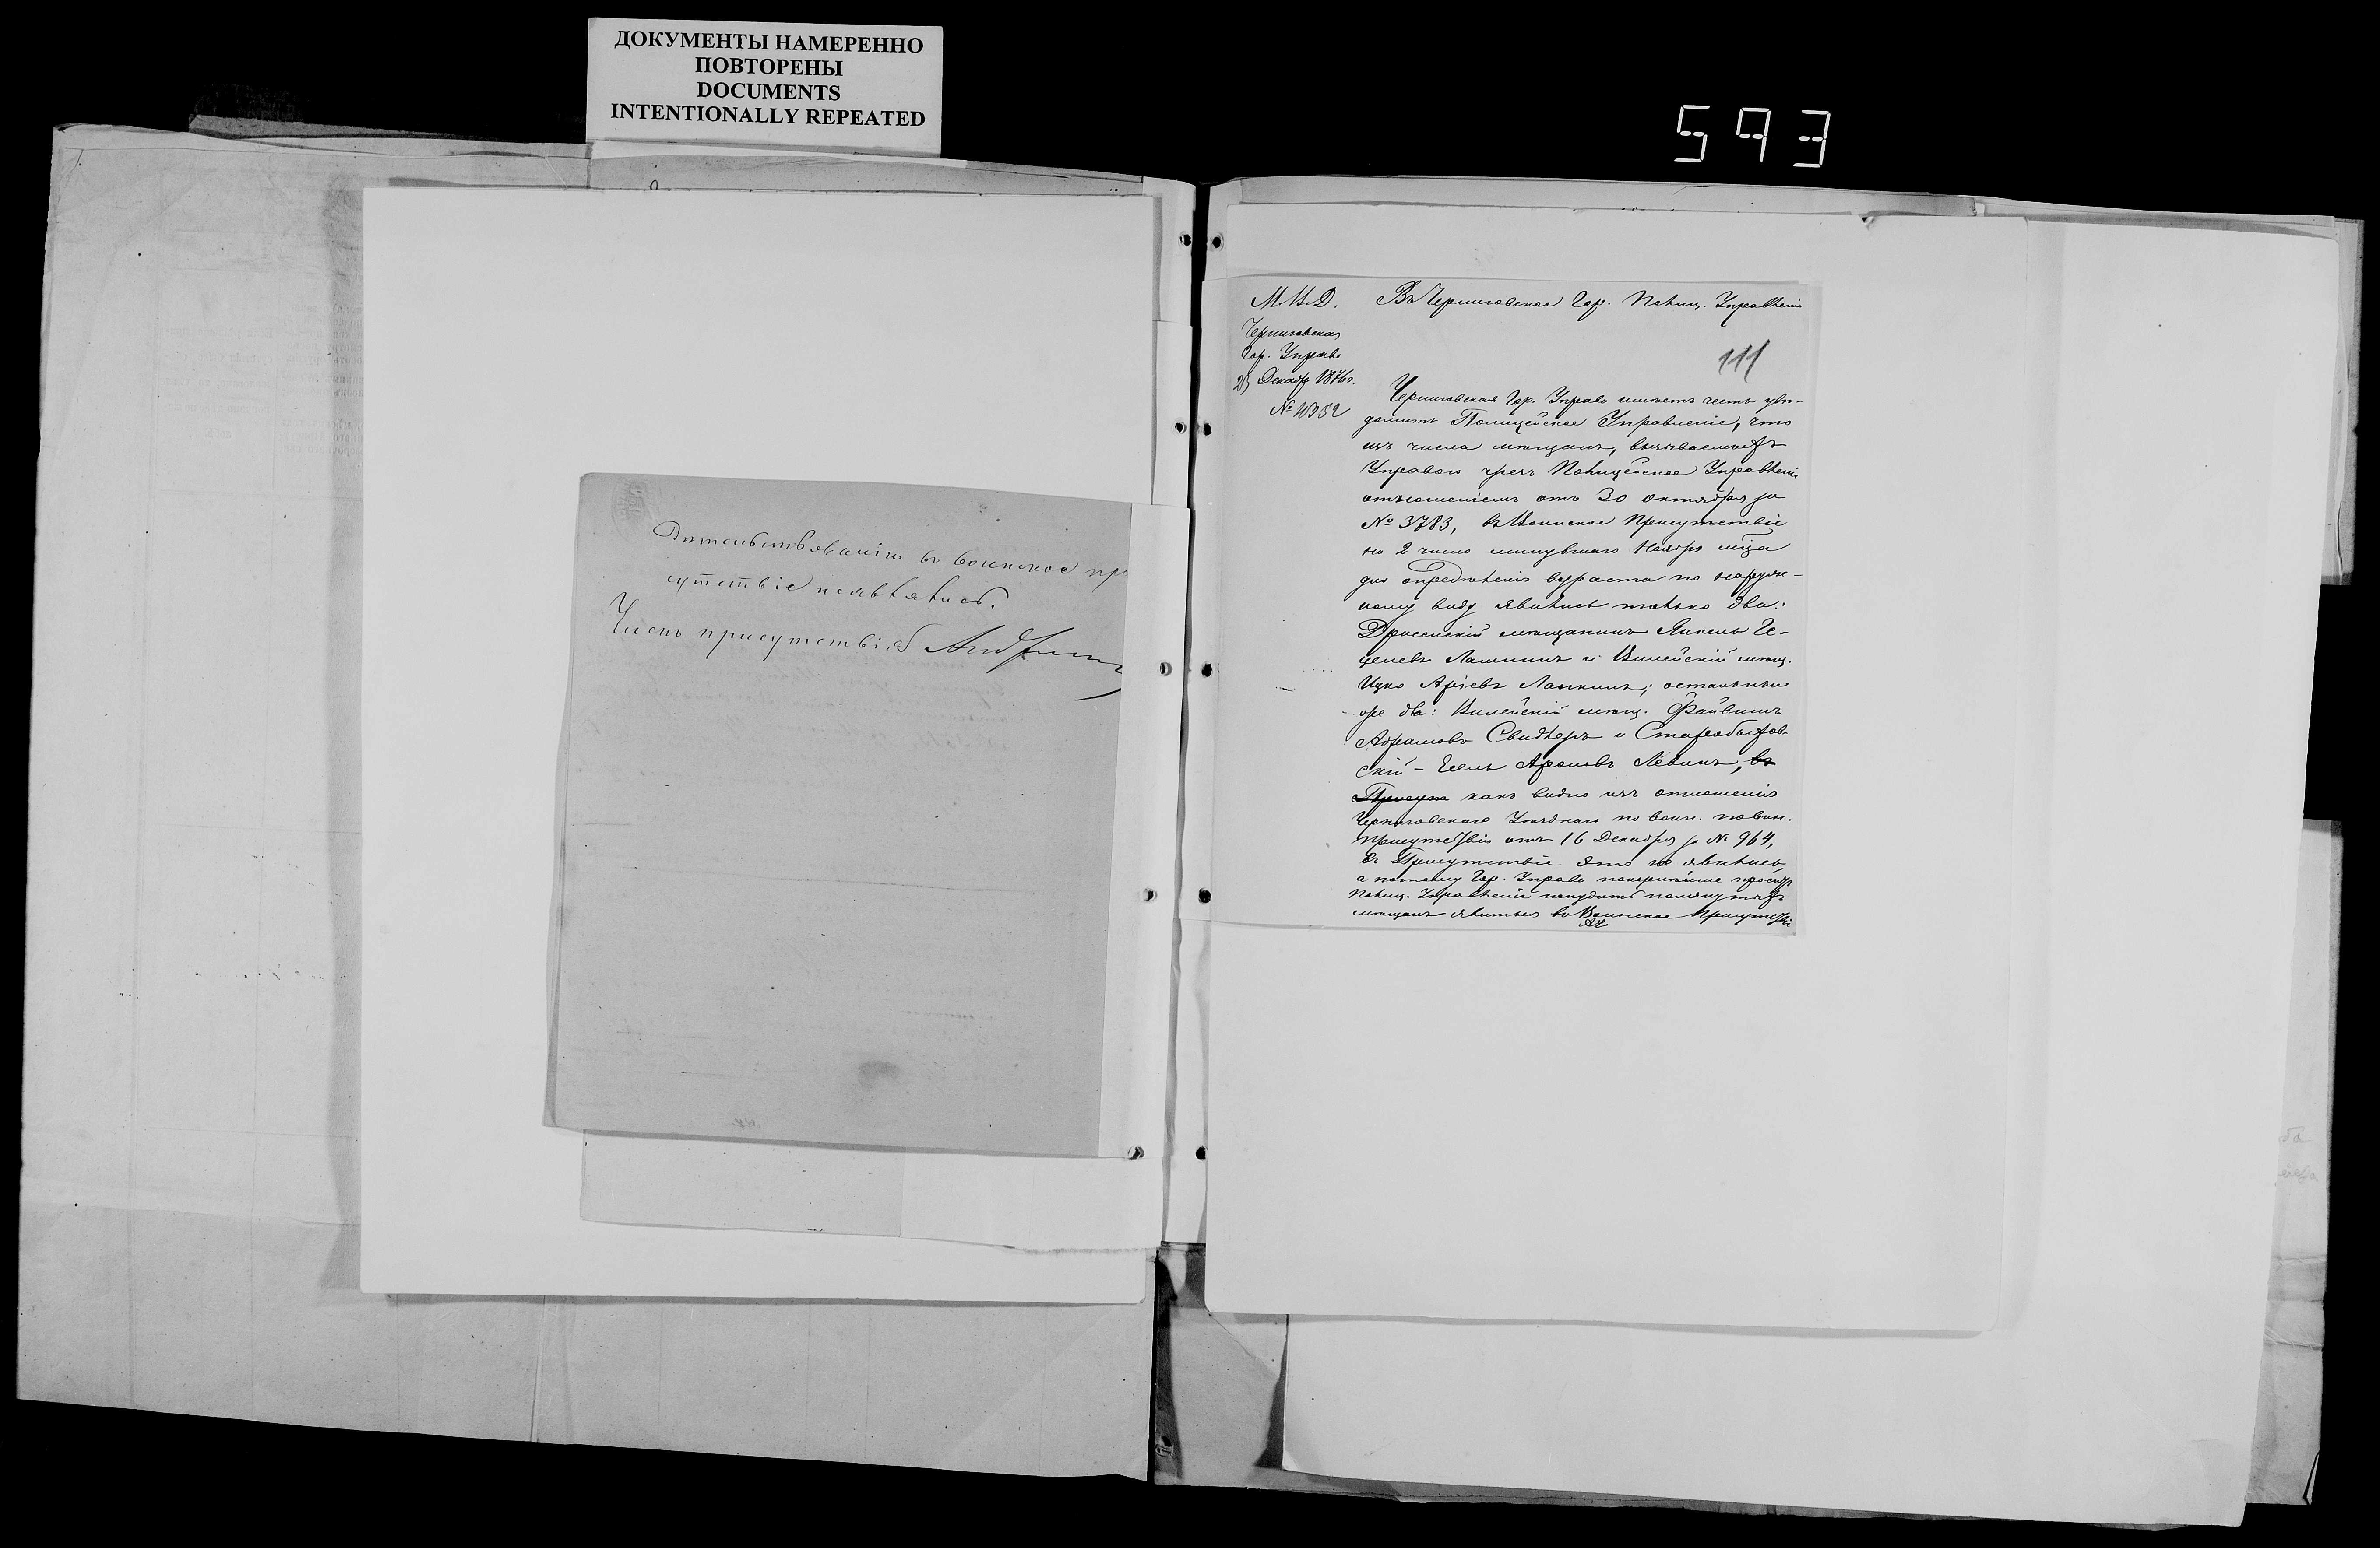 ДОКУМЕНТЫ НАМЕРЕННО
ПОВТОРЕНЫ
DOCUMENTS
INTENTIONALLY REPEATED
593
въ воинское при
сутствіе неявились.
Членъ присутствія
М.В.Д.
Черниговская
Гор. Управа
Декабр 1876 г.
№
Въ Черниговское Гор. Полиц. Управленіе
111
Черниговская Гор. Управа имѣетъ честь увѣ-
домить Полицейское Управленіе, что
изъ числа мѣщанъ, вызываемыхъ
Управою чрезъ Полицейское Управленіе
отношеніемъ отъ 30 октября за
№ 3783, въ Воинское Присутствіе
на 2 число минувшаго Ноября м-ца
для опредѣленія возраста по наруж-
ному виду явились только два:
Дрисенскій мѣщанинъ Янкель
и Вилейскій мѣщ.
Ицко Арьевъ остальные
же два: Вилейскій мѣщ. Файвишъ
Абрамовъ Свидлеръ и Старобыхов-
скій - Ароновъ Левинъ, въ
Присут какъ видно изъ отношенія
Черниговскаго Уѣзднаго по воин. повин.
Присутствія отъ 16 Декабря за № 964,
въ Присутствіе это не явились
а потому Гор. Управа покорнѣйше проситъ
Полиц. Управленіе понудить помянутыхъ
мѣщанъ явиться въ Воинское Присутствіе